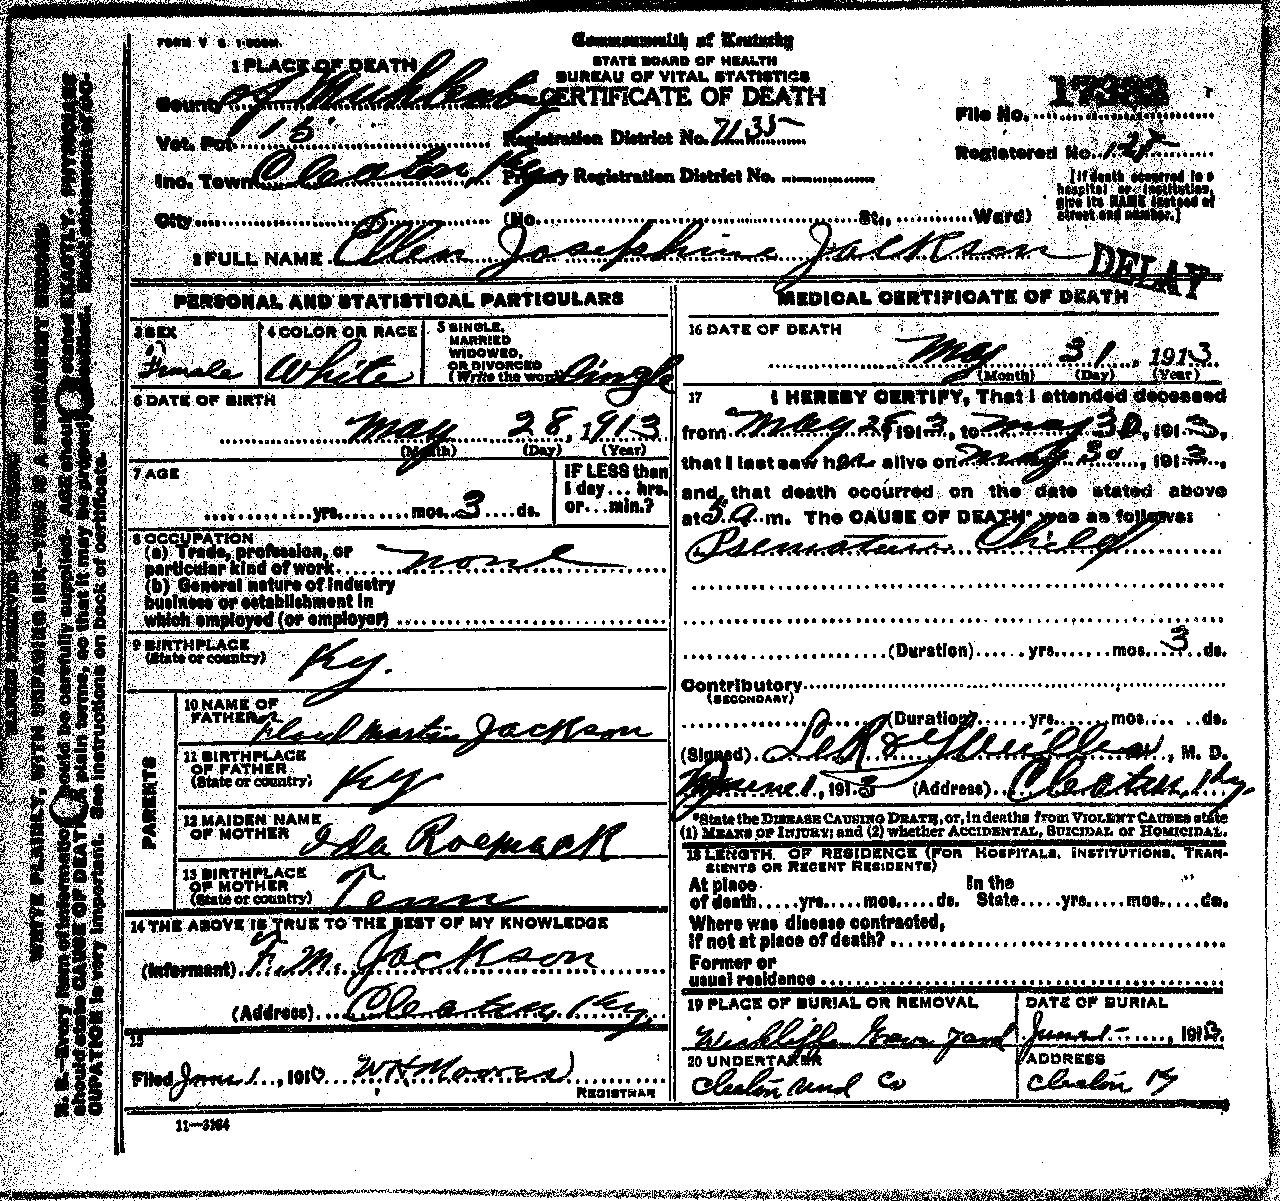 FORM V S. 1-500M.
Commonwealth of Kentucky
STATE BOARD OF HEALTH
BUREAU OF VITAL STATISTICS
CERTIFICATE OF DEATH
1 PLACE OF DEATH
County of Muhlenberg
Vot. Pct. 15
Inc. Town Cleaton, Ky
City (No. St., Ward)
Registration District No. 7135
Primary Registration District No.
File No.
Registered No. 125
[If death occurred in a hospital or institution, give its NAME instead of street and number.]
2 FULL NAME Ellen Josephine Jackson
DELAY
PERSONAL AND STATISTICAL PARTICULARS
3 SEX
Female
4 COLOR OR RACE
White
5 SINGLE, MARRIED WIDOWED, OR DIVORCED (Write the word) Single
6 DATE OF BIRTH
May 28, 1913
(Month) (Day) (Year)
7 AGE
yrs. mos. 3 ds.
IF LESS than 1 day... hrs. or... min.?
8 OCCUPATION
(a) Trade, profession, or particular kind of work none
(b) General nature of industry
business or establishment in
which employed (or employer)
9 BIRTHPLACE
(State or country) Ky.
PARENTS
10 NAME OF FATHER Floud Martin Jackson
11 BIRTHPLACE OF FATHER (State or country) Ky
12 MAIDEN NAME OF MOTHER Ida
13 BIRTHPLACE OF MOTHER (State or country) Tenn
14 THE ABOVE IS TRUE TO THE BEST OF MY KNOWLEDGE
(Informant) F. M. Jackson
(Address) Cleaton, Ky,
15
Filed June 1, 191 W H Moores
REGISTRAR
11—3164
MEDICAL CERTIFICATE OF DEATH
16 DATE OF DEATH
May 31, 1913
(Month) (Day) (Year)
17 I HEREBY CERTIFY, That I attended deceased
from May 28, 1913, to May 30, 1913,
that I last saw her alive on May 30, 1913,
and that death occurred on the date stated above
at 5 a. m. The CAUSE OF DEATH* was as follows:
Premature Child
(Duration) yrs. mos. 3 ds.
Contributory
(SECONDARY)
(Duration) yrs. mos. ds.
(Signed) M. D.
June 1, 1913 (Address) Cleaton, Ky.
*State the DISEASE CAUSING DEATH, or, in deaths from VIOLENT CAUSES state
(1) MEANS OF INJURY; and (2) whether ACCIDENTAL, SUICIDAL or HOMICIDAL.
18 LENGTH OF RESIDENCE (FOR HOSPITALS, INSTITUTIONS, TRANSIENTS OR RECENT RESIDENTS)
At place of death yrs. mos. ds. In the State yrs. mos. ds.
Where was disease contracted,
if not at place of death?
Former or
usual residence
19 PLACE OF BURIAL OR REMOVAL
Wickliffe Grave yard
DATE OF BURIAL
June 1, 1913.
20 UNDERTAKER
Cleaton und Co
ADDRESS
Cleaton Ky
WRITE PLAINLY, WITH UNFADING INK—THIS IS A PERMANENT RECORD
N. B.—Every item of information should be carefully supplied. AGE should be stated EXACTLY. PHYSICIANS
should state CAUSE OF DEATH in plain terms, so that it may be properly classified. Exact statement of OC-
CUPATION is very important. See instructions on back of certificate.